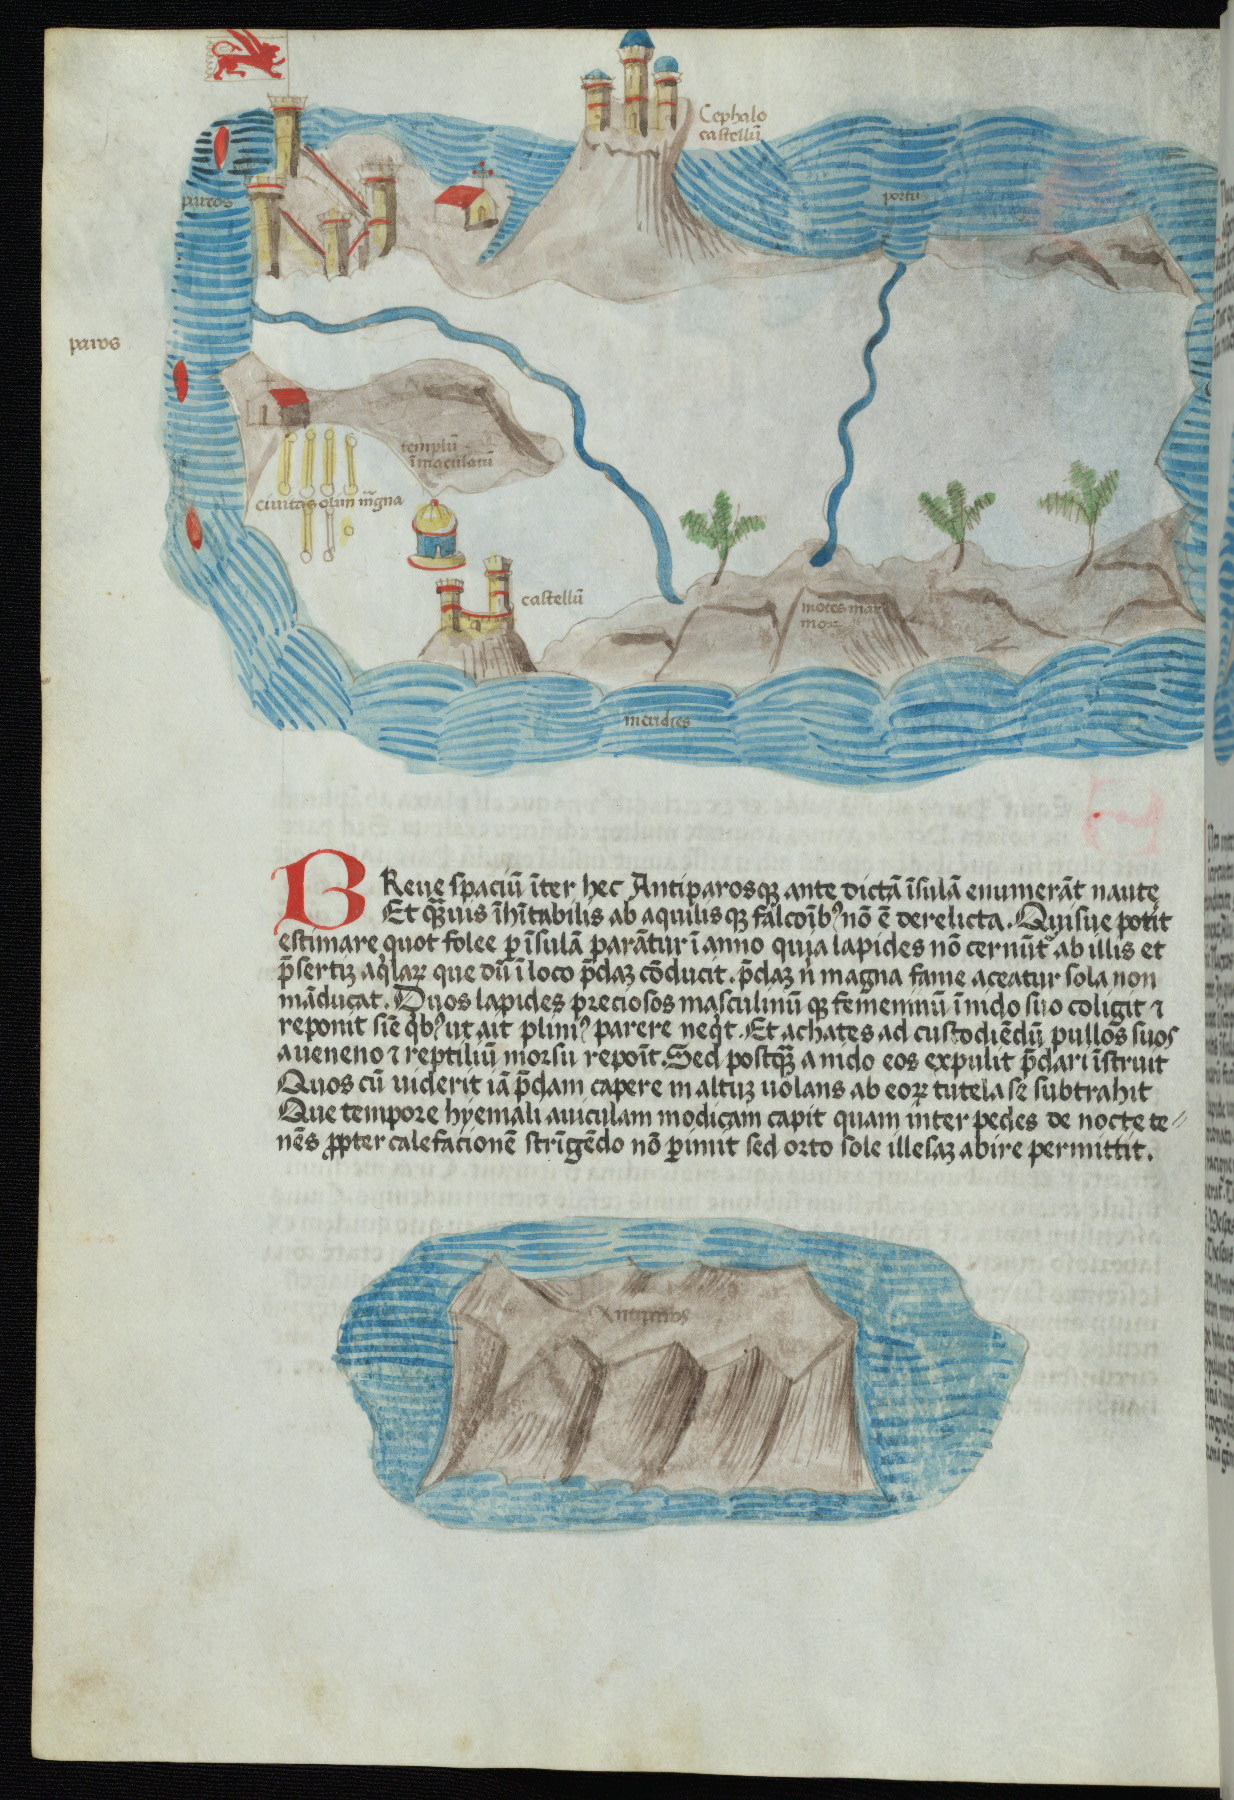 Cephalo
castellū
paros
portu
paros
templū
īmaculatū
ciuitas olim magna
castellū
mōtes mar
mor
meridies
BReue spaciū īter hec Antiparosqꝫ ante dictā īsulā enumerāt naute
Et qͣꝫuis īhītabilis ab aquilisqꝫ falcoībꝰ nō ē derelicta. Quisue potīt
estimare quot folee ꝑ īsulā parātur ī anno quia lapides nō cernūt̄ ab illis et
p̄sertiꝫ aqͥlaꝝ que dū ī loco p̄daꝫ cōducit. p̄daꝫ n̄ magna fame aceatur sola non
māducat. Duos lapides preciosos masculinū qꝫ femeninū ī nido suo coligit ⁊
reponit siē qͥbꝰ ut ait pliniꝰ parere neqͥt. Et achates ad custodiēdū pullos suos
a ueneno ⁊ reptiliū morsu repoīt. Sed postqͣꝫ a nido eos expulit p̄dari īstruit
Quos cū uiderit iā p̄dam capere in altuꝫ uolans ab eoꝝ tutela se subtrahit
Que tempore hyemali auiculam modicam capit quam inter pedes de nocte te〃
nēs ꝓpter calefacionē strīgēdo nō ꝑimit sed orto sole illesaꝫ abire permittit.
Antiparos